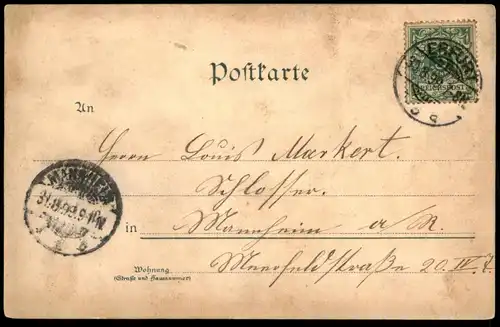 ERFURT
REICHSPOST
Postkarte
An
Herrn Louis Markert.
Schlosser.
MANNHEIM
31.8.99.9-10V.
in Mannheim a/R.
Wohnung
(Straße und Hausnummer)
Meerfeldstraße 20. IV.